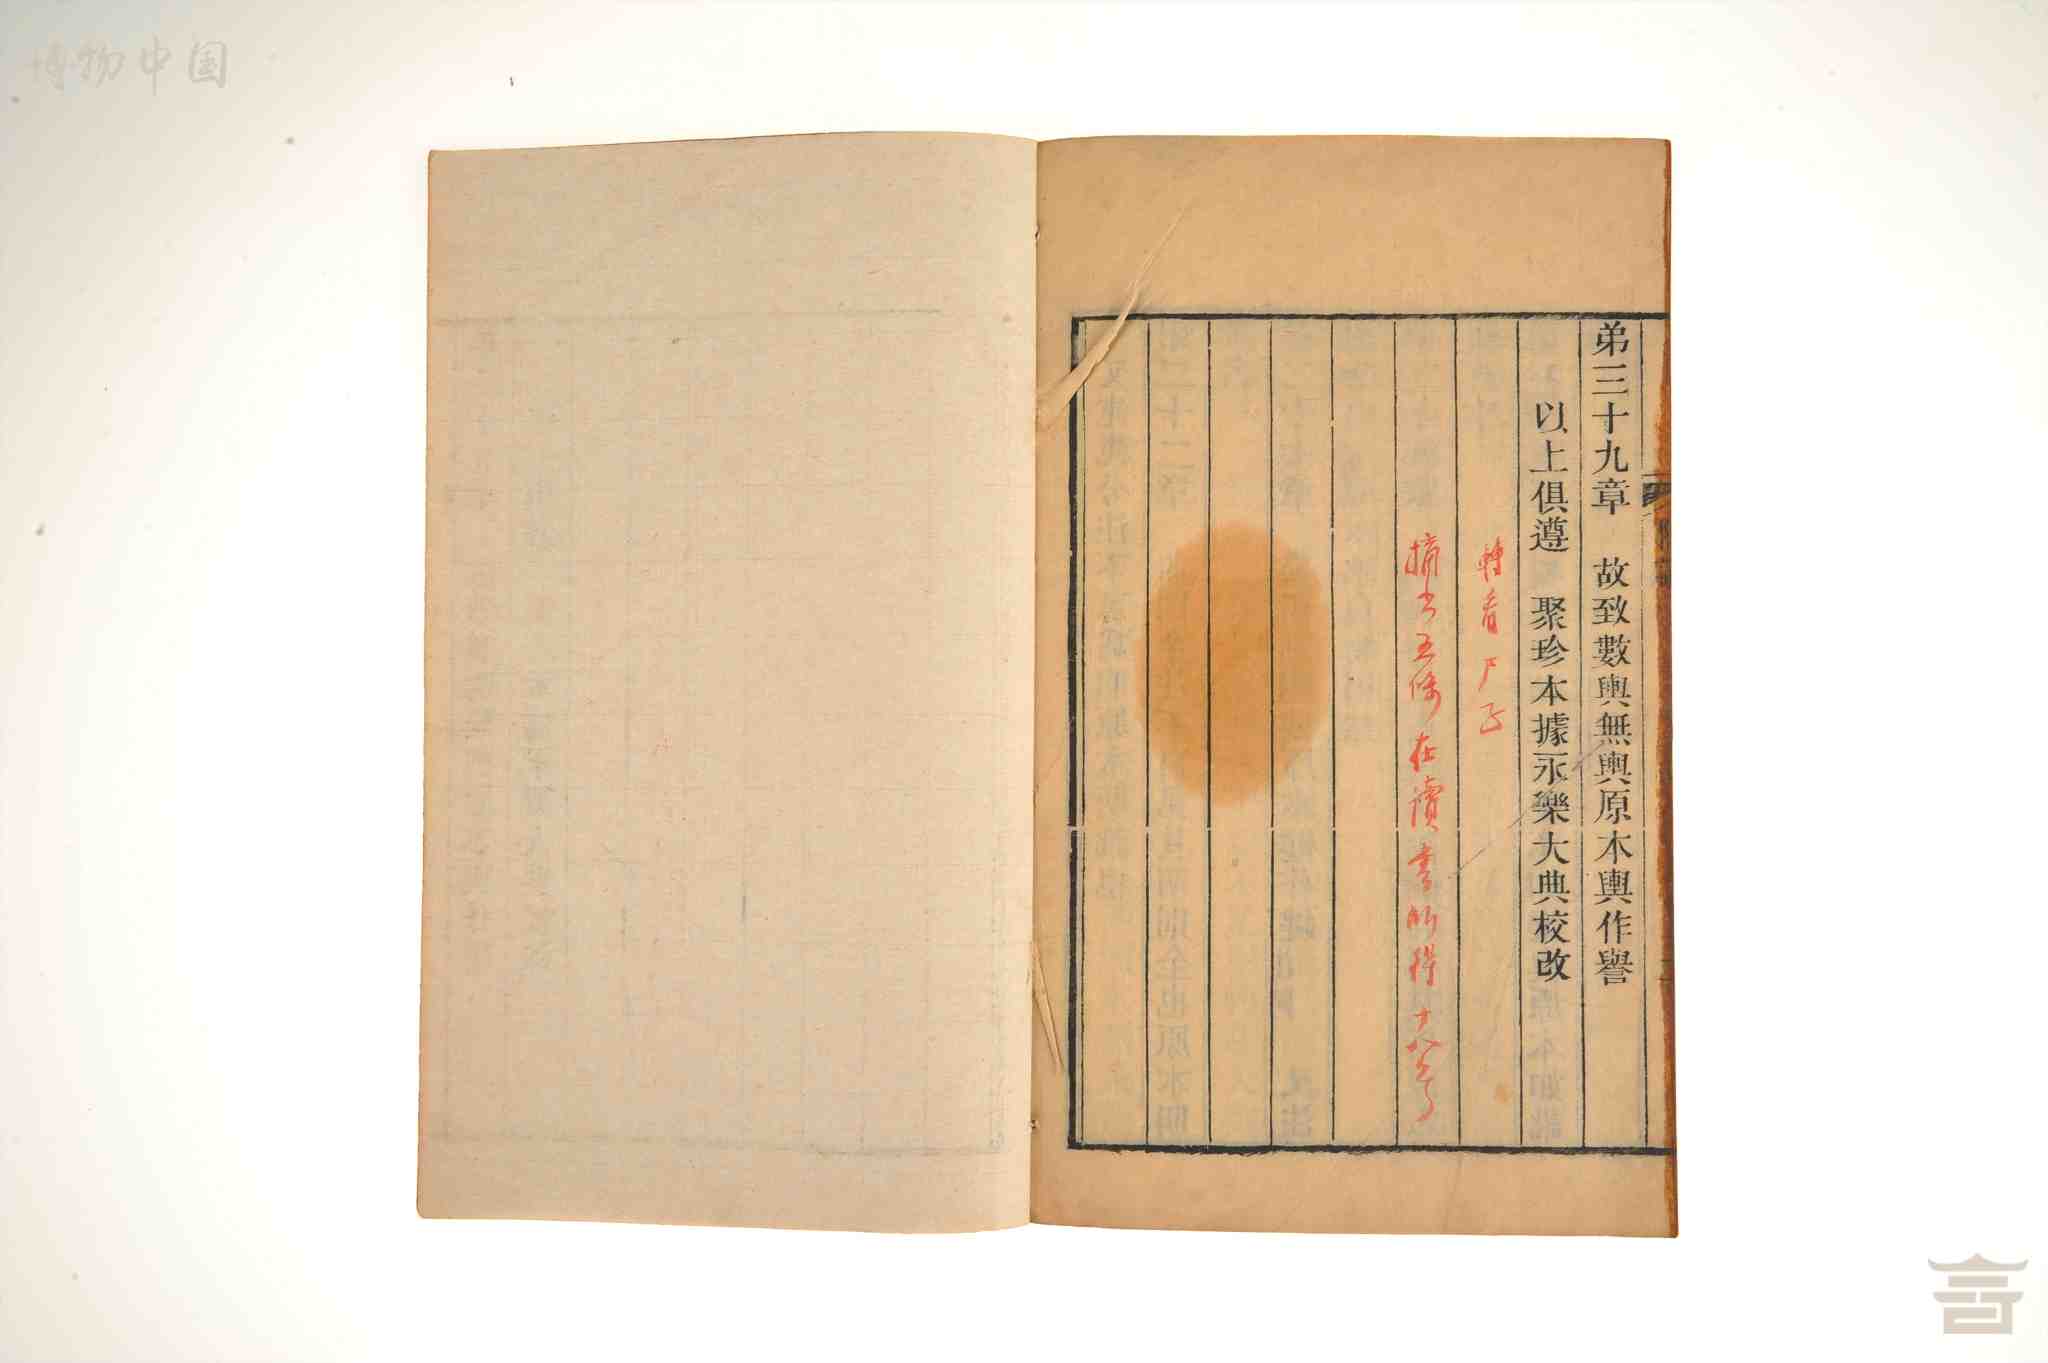 弟三十九章　故致數輿無輿原本輿作譽
以上俱遵　聚珍本據永樂大典校改
轉看尸子
摘出五條在讀書所得十八号
博物中国